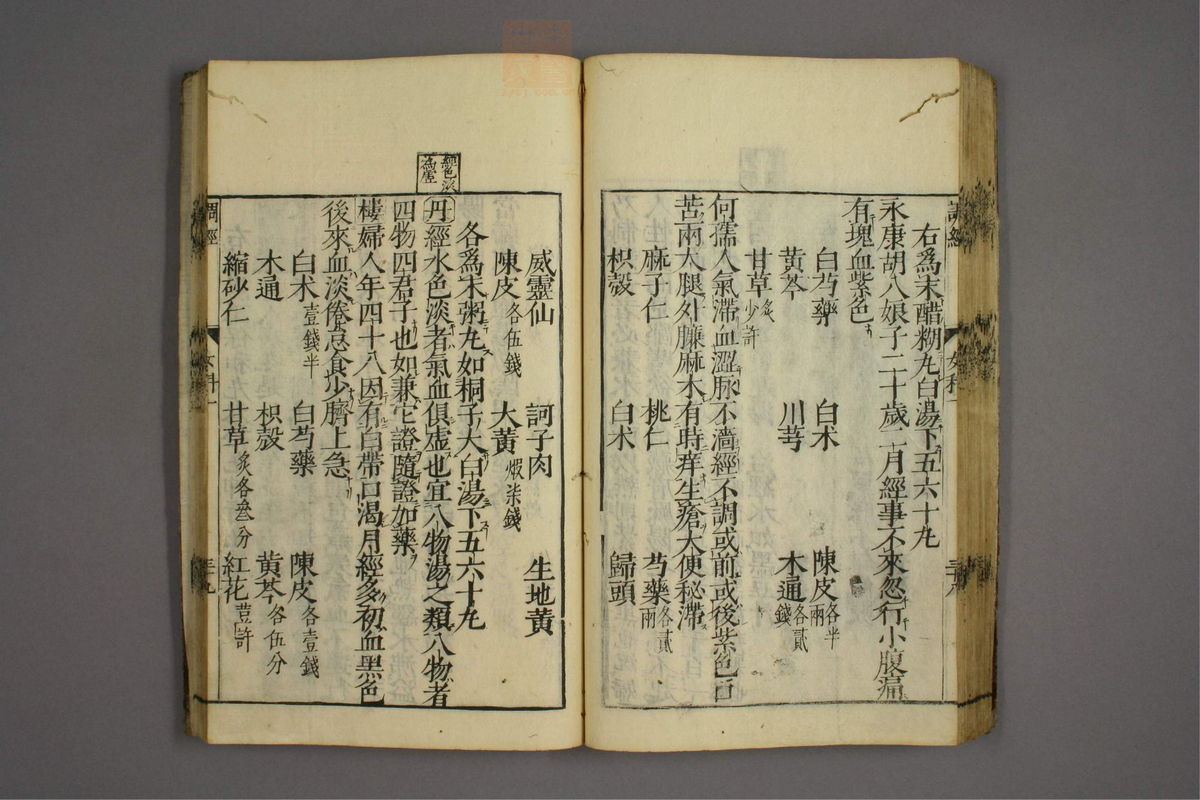 調經
女科一
三十八
右為末醋糊丸白湯下五六十丸
永康胡八娘子二十歲二月經事不來忽行小腹痛
有塊血紫色
白芍藥 白术 陳皮各半兩
黃芩 川芎 木通各貳錢
甘草炙少許
何孺人氣滯血澀脉不濇經不調或前或後紫色口
苦兩大腿外臁麻木有時痒生瘡大便秘滯
麻子仁 桃仁 芍藥各貳兩
枳殼 白术 歸頭
威靈仙 訶子肉 生地黃
陳皮各伍錢 大黃煆柒錢
各為末粥丸如桐子大白湯下五六十丸
經色淡為虛
丹經水色淡者氣血俱虛也宜八物湯之類八物者
四物四君子也如兼它證隨證加藥
樓婦人年四十八因有白帶口渴月經多初血黑色
後來血淡倦怠食少臍上急
白术壹錢半 白芍藥 陳皮各壹錢
木通 枳殼 黃芩各伍分
縮砂仁 甘草炙各叁分 紅花荳許
調經
女科一
三十九